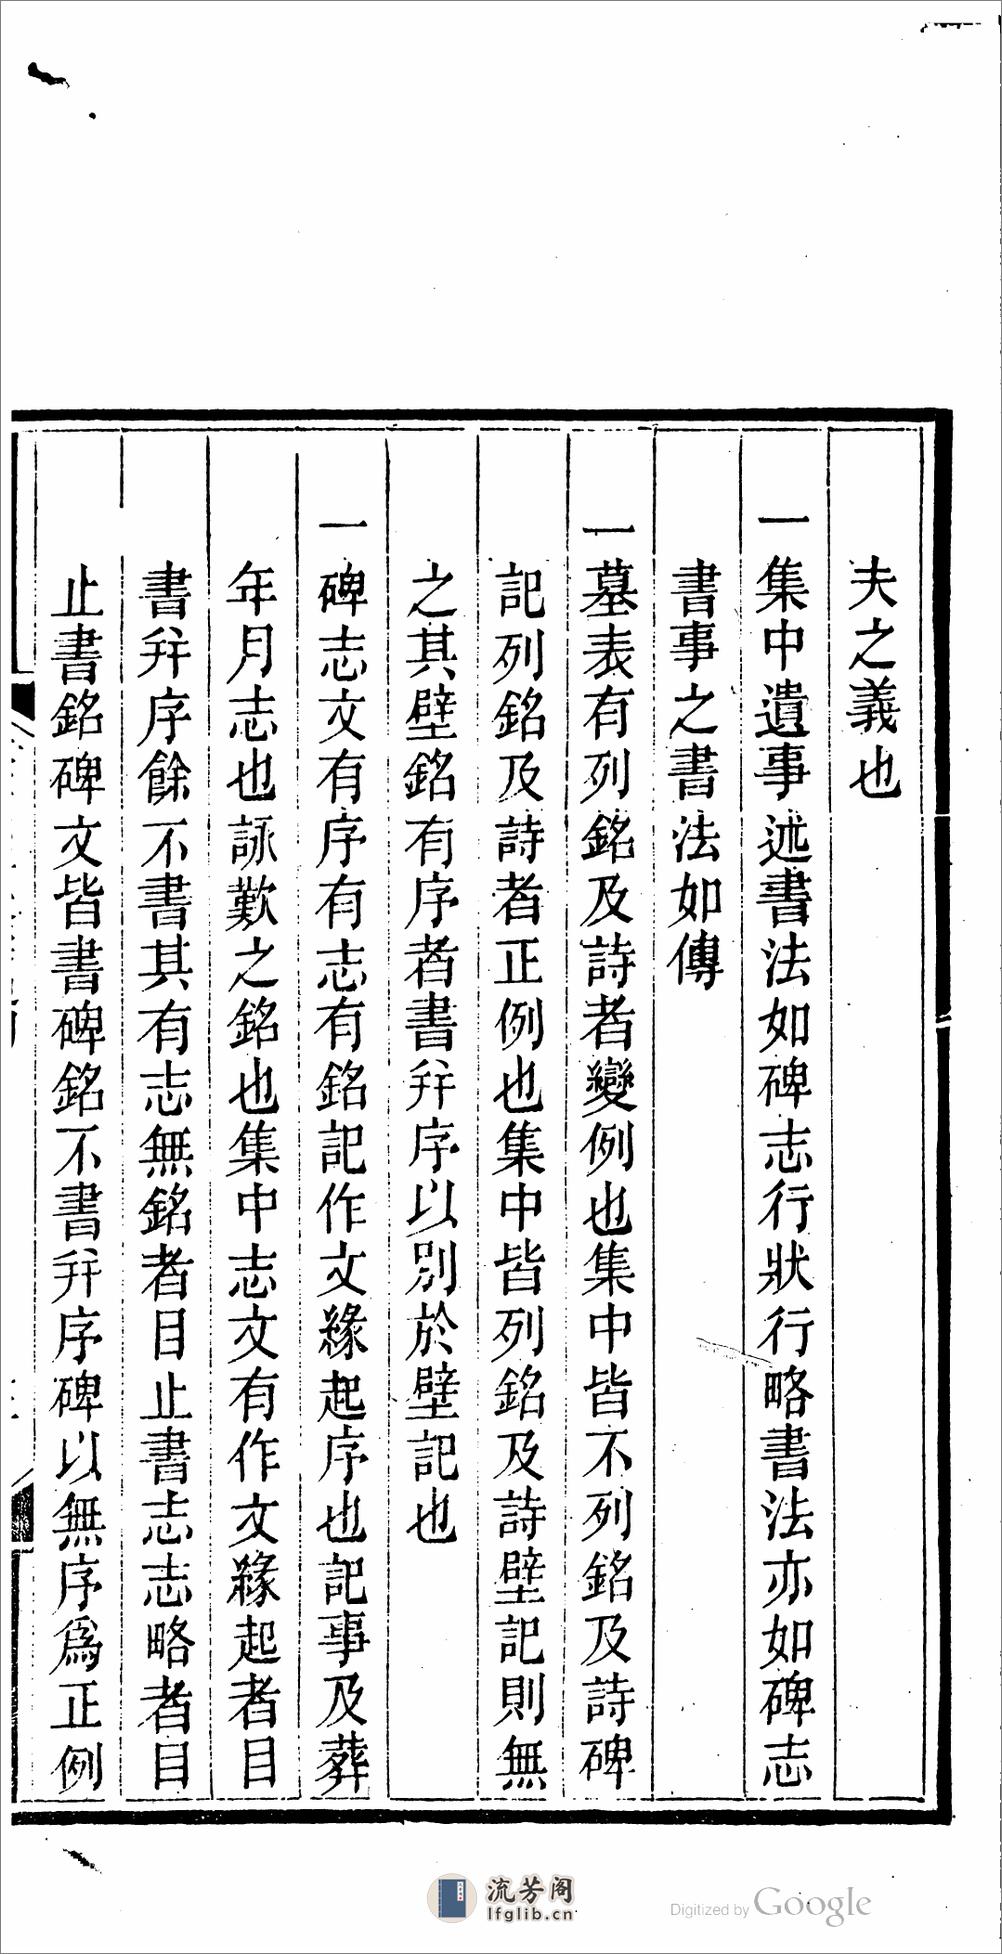 夫之義也
一集中遺事述書法如碑志行狀行略書法亦如碑志
書事之書法如傳
一墓表有列銘及詩者變例也集中皆不列銘及詩碑
記列銘及詩者正例也集中皆列銘及詩壁記則無
之其壁銘有序者書幷序以別於壁記也
一碑志文有序有志有銘記作文緣起序也記事及葬
年月志也詠歎之銘也集中志文有作文緣起者目
書幷序餘不書其有志無銘者目止書志志略者目
止書銘碑文皆書碑銘不書幷序碑以無序爲正例
流芳阁
lfglib.cn
Digitized by Google